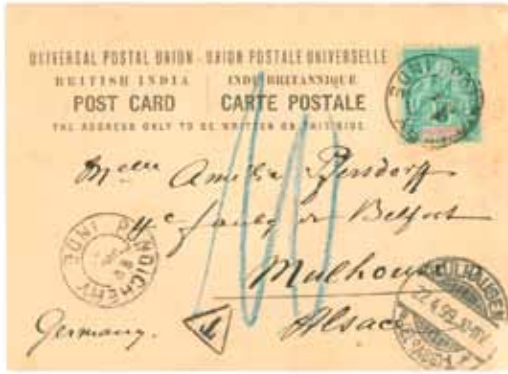 UNIVERSAL POSTAL UNION - UNION POSTALE UNIVERSELLE
BRITISH INDIA INDE BRITANNIQUE
POST CARD CARTE POSTALE
THE ADDRESS ONLY TO BE WRITTEN ON THIS SIDE.
Melle Amélie
fauby de Belfort
Mulhouse
Alsace
Germany.
INDE PONDICHERY
T
MÜLHAUSEN
22.4.99